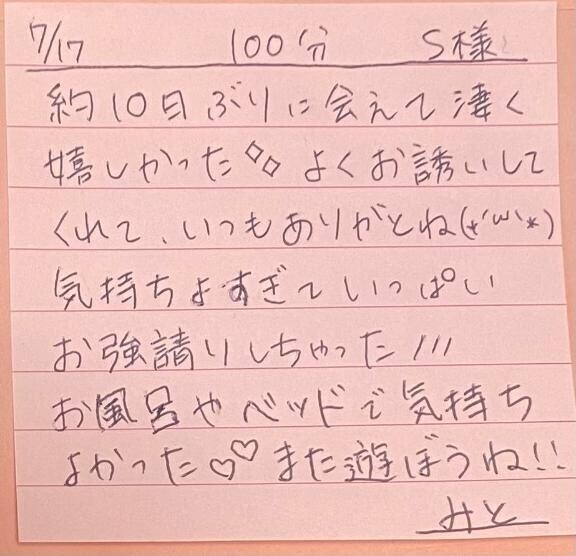 7/17 100分 S様
約10日ぶりに会えて凄く
嬉しかった◇◇ よくお誘いして
くれて、いつもありがとね(*´ω`*)
気持ちよすぎていっぱい
お強請りしちゃった///
お風呂やベッドで気持ち
よかった♡♡ また遊ぼうね!!
みと